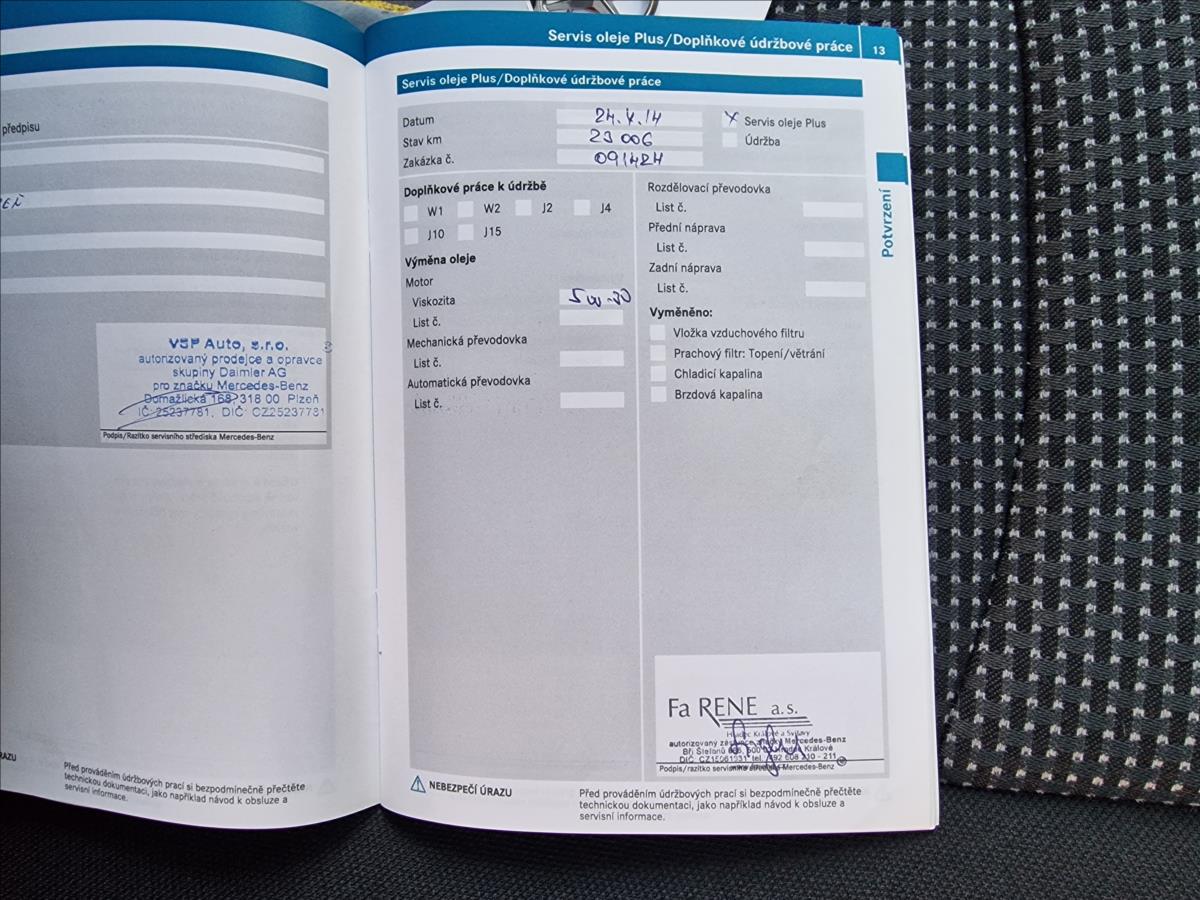 předpisu
VSP Auto, s.r.o.
autorizovaný prodejce a opravce
skupiny Daimler AG
pro značku Mercedes-Benz
Domažlická 168, 318 00 Plzeň
IČ 25237781, DIČ CZ25237781
Podpis/Razítko servisního střediska Mercedes-Benz
Před prováděním údržbových prací si bezpodmínečně přečtěte
technickou dokumentaci, jako například návod k obsluze a
servisní informace.
Servis oleje Plus/Doplňkové údržbové práce 13
Servis oleje Plus/Doplňkové údržbové práce
Datum 24.4.14
Stav km 23 006
Zakázka č. 091424
X Servis oleje Plus
Údržba
Doplňkové práce k údržbě
W1 W2 J2 J4
J10 J15
Výměna oleje
Motor
Viskozita 5W-30
List č.
Mechanická převodovka
List č.
Automatická převodovka
List č.
Rozdělovací převodovka
List č.
Přední náprava
List č.
Zadní náprava
List č.
Vyměněno:
Vložka vzduchového filtru
Prachový filtr: Topení/větrání
Chladicí kapalina
Brzdová kapalina
Potvrzení
Fa RENE a.s.
Hradec Králové a Svitavy
autorizovaný Mercedes-Benz
Hradec Králové
Podpis/razítko servisního střediska Mercedes-Benz
NEBEZPEČÍ ÚRAZU
Před prováděním údržbových prací si bezpodmínečně přečtěte
technickou dokumentaci, jako například návod k obsluze a
servisní informace.